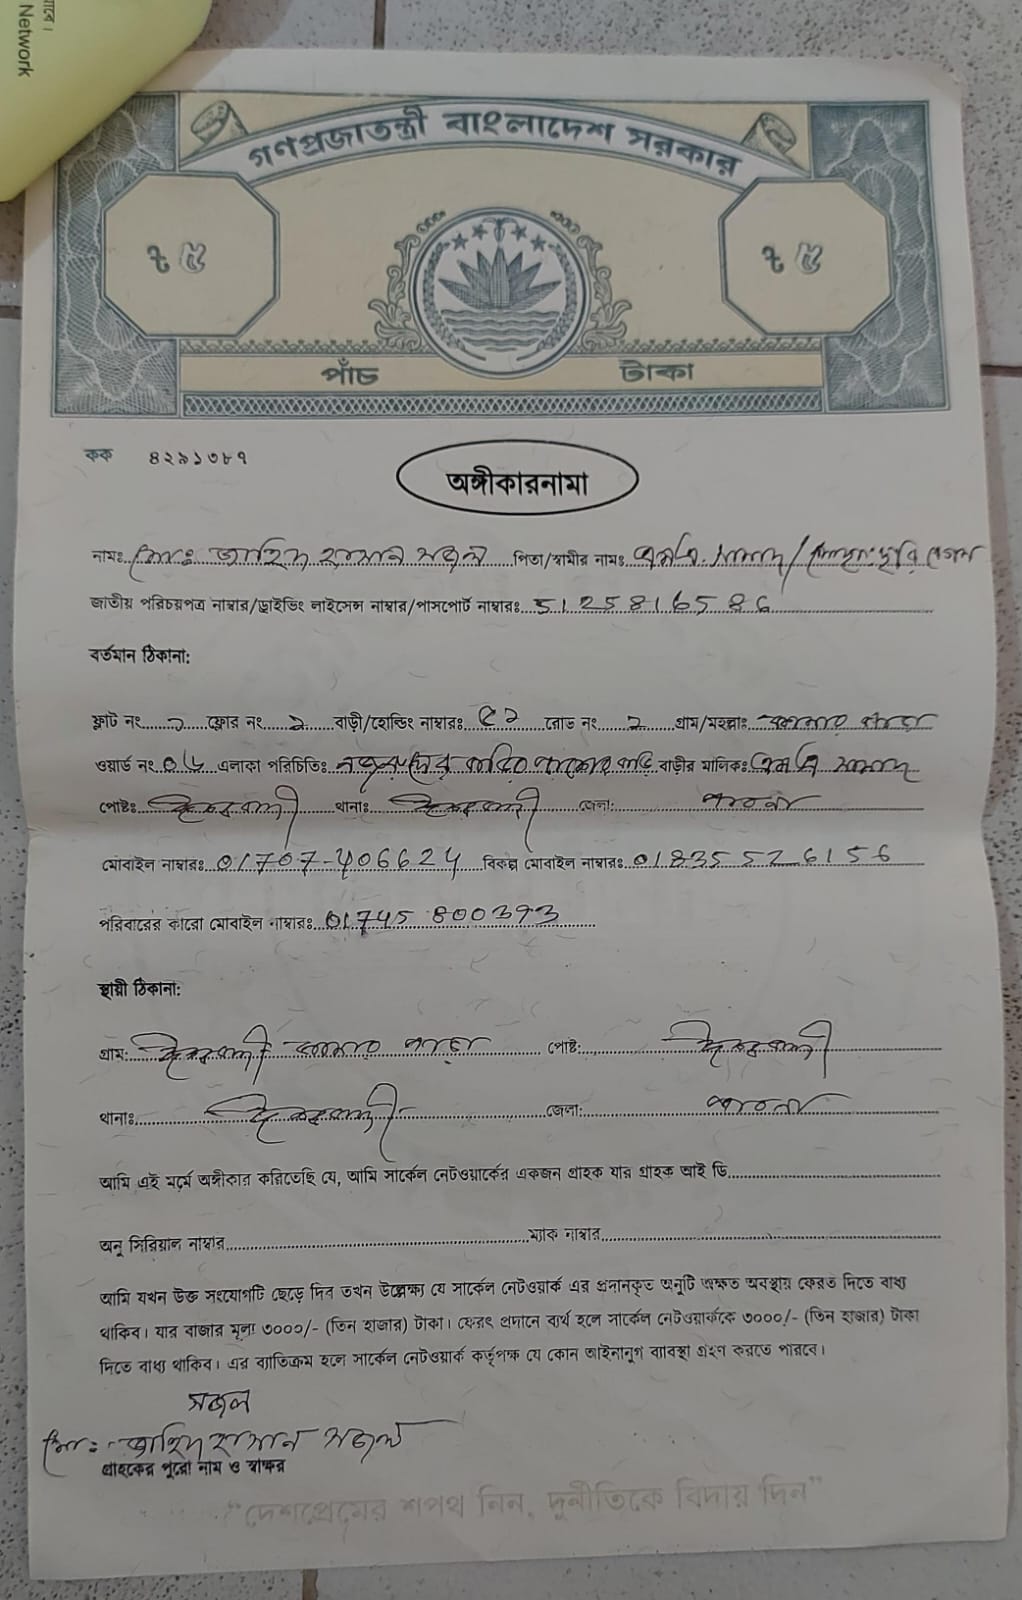 াবে।
Network
গণপ্রজাতন্ত্রী বাংলাদেশ সরকার
৳ ৫ ৳ ৫
পাঁচ টাকা
কক ৪২৯১৩৮৭
অঙ্গীকারনামা
নামঃ মোঃ জাহিদ হাসান সজল পিতা/স্বামীর নামঃ
জাতীয় পরিচয়পত্র নাম্বার/ড্রাইভিং লাইসেন্স নাম্বার/পাসপোর্ট নাম্বারঃ 5125816586
বর্তমান ঠিকানা:
ফ্লাট নং ফ্লোর নং বাড়ী/হোল্ডিং নাম্বারঃ রোড নং গ্রাম/মহল্লাঃ
ওয়ার্ড নং এলাকা পরিচিতিঃ বাড়ীর মালিকঃ
পোষ্টঃ ঈশ্বরদী থানাঃ ঈশ্বরদী জেলা: পাবনা
মোবাইল নাম্বারঃ 01707-406624 বিকল্প মোবাইল নাম্বারঃ 01835526156
পরিবারের কারো মোবাইল নাম্বারঃ 01745 800393
স্থায়ী ঠিকানা:
গ্রাম: ঈশ্বরদী পাড়া পোষ্ট: ঈশ্বরদী
থানাঃ ঈশ্বরদী জেলা: পাবনা
আমি এই মর্মে অঙ্গীকার করিতেছি যে, আমি সার্কেল নেটওয়ার্কের একজন গ্রাহক যার গ্রাহক আই ডি
অনু সিরিয়াল নাম্বার ম্যাক নাম্বার
আমি যখন উক্ত সংযোগটি ছেড়ে দিব তখন উল্লেখ্য যে সার্কেল নেটওয়ার্ক এর প্রদানকৃত অনুটি অক্ষত অবস্থায় ফেরত দিতে বাধ্য
থাকিব। যার বাজার মূল্য ৩০০০/- (তিন হাজার) টাকা। ফেরৎ প্রদানে ব্যর্থ হলে সার্কেল নেটওয়ার্ককে ৩০০০/- (তিন হাজার) টাকা
দিতে বাধ্য থাকিব। এর ব্যাতিক্রম হলে সার্কেল নেটওয়ার্ক কর্তৃপক্ষ যে কোন আইনানুগ ব্যাবস্থা গ্রহণ করতে পারবে।
সজল
মোঃ জাহিদ হাসান সজল
গ্রাহকের পুরো নাম ও স্বাক্ষর
"দেশপ্রেমের শপথ নিন, দুর্নীতিকে বিদায় দিন"